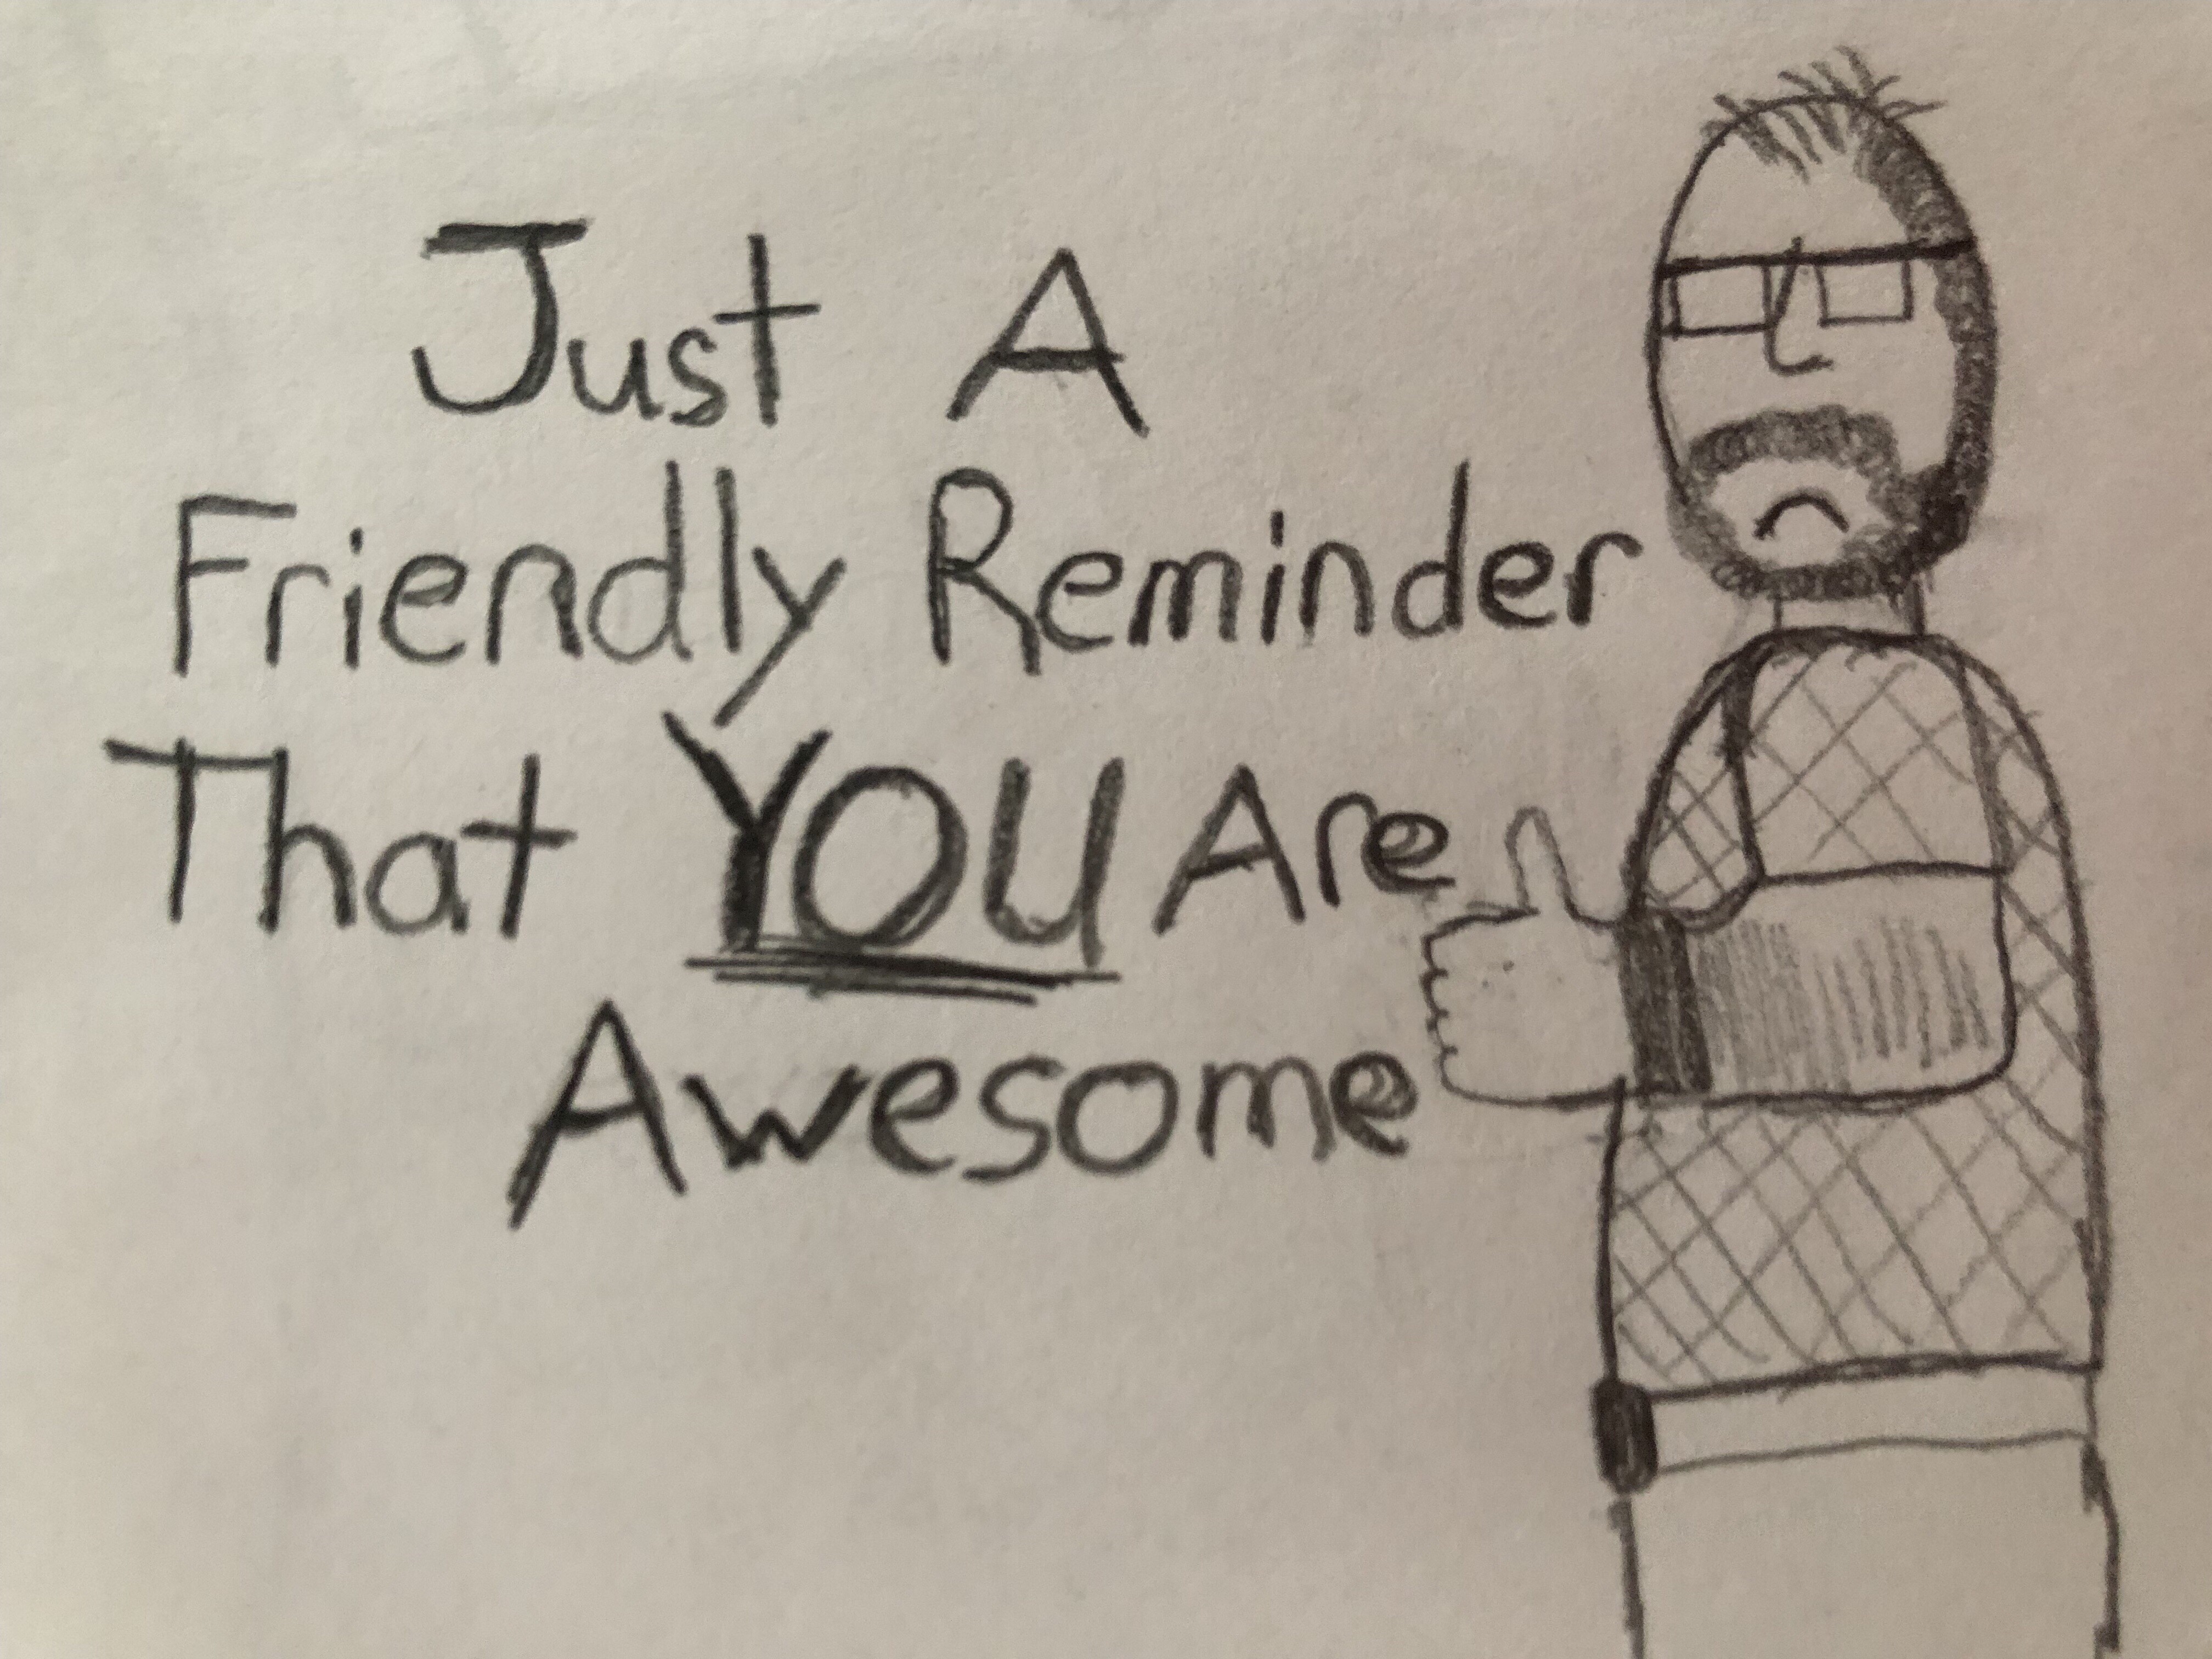 Just A
Friendly Reminder
That YOU Are
Awesome